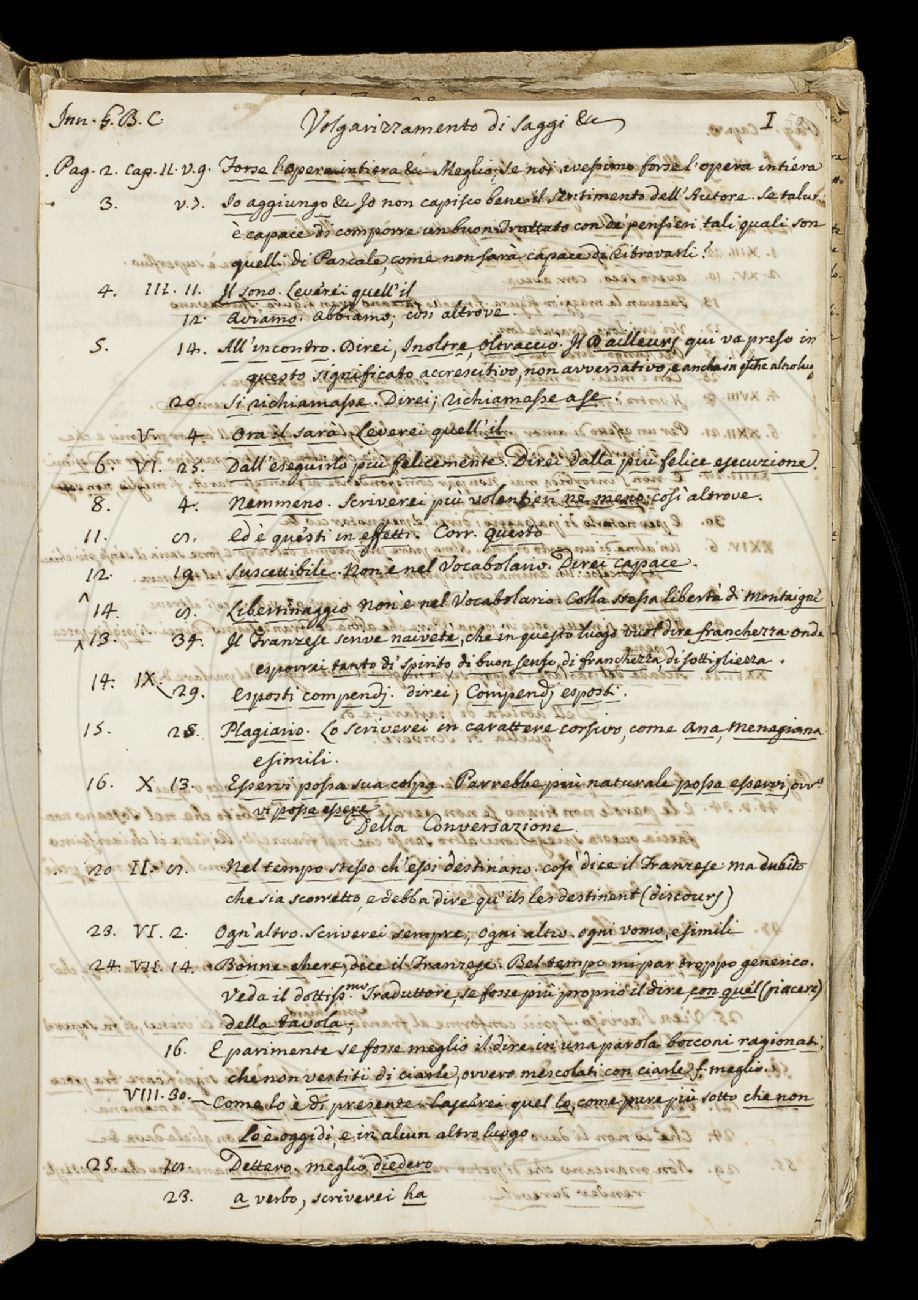 Volgarizzamento di Saggi &c I
Pag. 2. Cap. II. v. 9. Forse l'opera intiera &c Meglio, Se noi avessimo forse l'opera intiera
3. v. 3. Io aggiungo &c Io non capisco bene il Sentimento dell'Autore. Se talun
è capace di comporre un buon Trattato con de' pensieri tali quali son
quelli di Pascale, come non sarà capace di ritrovarli?
4. III. 11. Il sono. Leverei quell'il
12. Aviamo. Abbiamo, così altrove.
5. 14. All'incontro. Direi, Inoltre, Oltraccio. Il D'ailleurs qui va preso in
questo significato accrescitivo, non avversativo, e anche in qche altro luog
20. Si richiamasse. Direi, richiamasse a se.
V. 4. Ora il sarà. Leverei quell'il
6. VI. 25. Dall'eseguirlo più felicemente. Direi dalla più felice esecuzione.
8. 4. Nemmeno. Scriverei più volentieri nè meno; così altrove.
11. Ed è questi in effetti. Corr. questo
12. 19. Suscettibile. Non è nel Vocabolario. Direi capace.
14. Libertinaggio non è nel Vocabolario. Colla stessa libertà di Montaigne
13. 34. Il Franzese scrive naiveté, che in questo luogo vuol dire franchezza onde
esporrei tanto di spirito di buon senso, di franchezza di sottigliezza.
14. IX. 29. Esposti compendj. direi, Compendj esposti.
15. 28. Plagiario. Lo scriverei in carattere corsivo, come Ana, Menagiana
e simili.
16. X 13. Esservi possa sua colpa. Parrebbe più naturale possa esservi, ovvo
vi possa essere
Della Conversazione.
20 II. Nel tempo stesso ch'essi destinano. così dice il Franzese ma dubito
che sia scorretto, e debba dire qu'ils les destinent (discours)
23. VI. 2. Ogn'altro. Scriverei sempre, ogni altro. ogni uomo, e simili
24. VII. 14. Bonne chere, dice il Franzese. Bel tempo mi par troppo generico.
Veda il dottissmo Traduttore, se fosse più proprio il dire, con quel (piacere)
della tavola;
16. E parimente se fosse meglio il dire in una parola bocconi ragionati,
che non vestiti di ciarle, ovvero mescolati con ciarle f. meglio.
VIII. 30. Come lo è di presente. Lascerei quel lo, come pure più sotto che non
lo è oggidì, e in alcun altro luogo
25. Dettero. meglio diedero
23. a verbo, scriverei ha